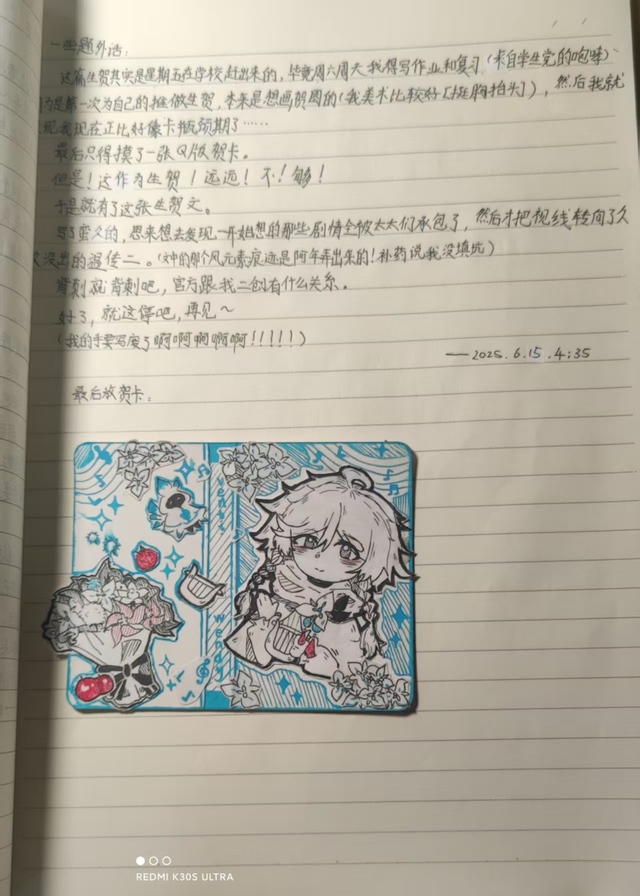 一些题外话：
这篇生贺其实是星期五在学校赶出来的，毕竟周六周天我得写作业和复习（来自学生党的咆哮）
为是第一次为自己的推做生贺，本来是想画贺图的（我美术比较好【挺胸抬头】），然后我就
现我现在正比好像卡瓶颈期了……
最后只得摸了一张Q版贺卡。
但是！这作为生贺！远远！不！够！
于是就有了这张生贺文。
写了蛮久的，思来想去发现一开始想的那些剧情全被太太们承包了，然后才把视线转向了久
没出的温传二。（文中的那个风元素痕迹是阿年弄出来的！补药说我没填坑）
背刺就背刺吧，官方跟我二创有什么关系。
好了，就这样吧，再见～
（我的手要写废了啊啊啊啊啊！！！！！）
——2025.6.15.4:35
最后放贺卡：
venti
wendy
REDMI K30S ULTRA